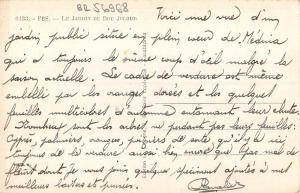 BL 56988
6133. - FES. - Le Jardin de Bou Jeloud
Voici une vue d'un
jardin public situé en plein cœur de Médina
qui a toujours le même coup d'œil malgré la
saison actuelle. Le cadre de verdure est même
embelli par les oranges dorées et les quelques
feuilles multicolores d'automne entamant leur chute.
Nombreux sont les arbres ne perdant pas leurs feuilles.
Cyprès, palmiers, oranges, de sorte qu'il y a ici
toujours de la verdure aussi bien encore que pas mal de
fleurs dont je vous quelques spécimens ajoutés à mes
meilleurs